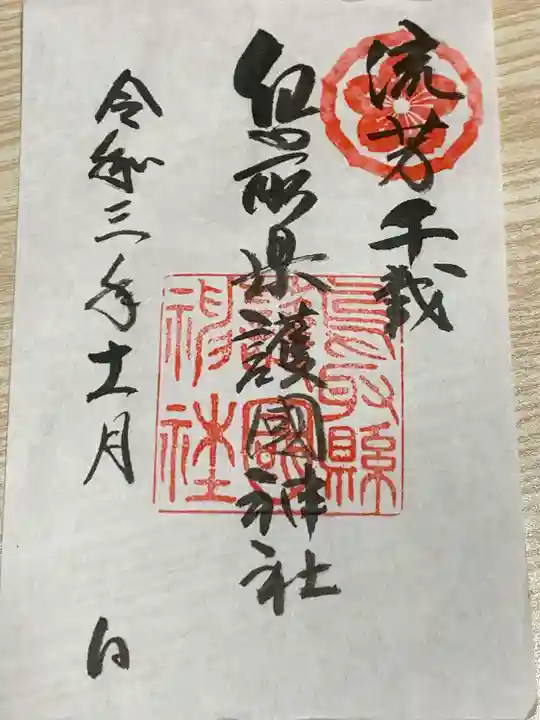 流芳千載
鳥取県護國神社
令和三年十一月 日
鳥取縣
護國
神社